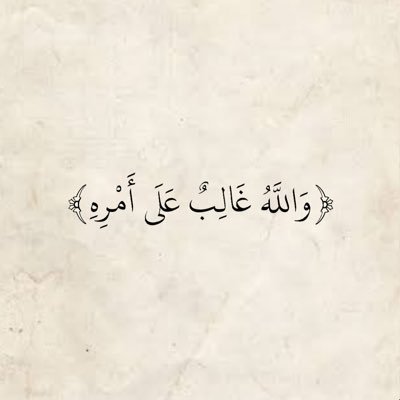 ﴿وَاللَّهُ غَالِبٌ عَلَى أَمْرِهِ﴾